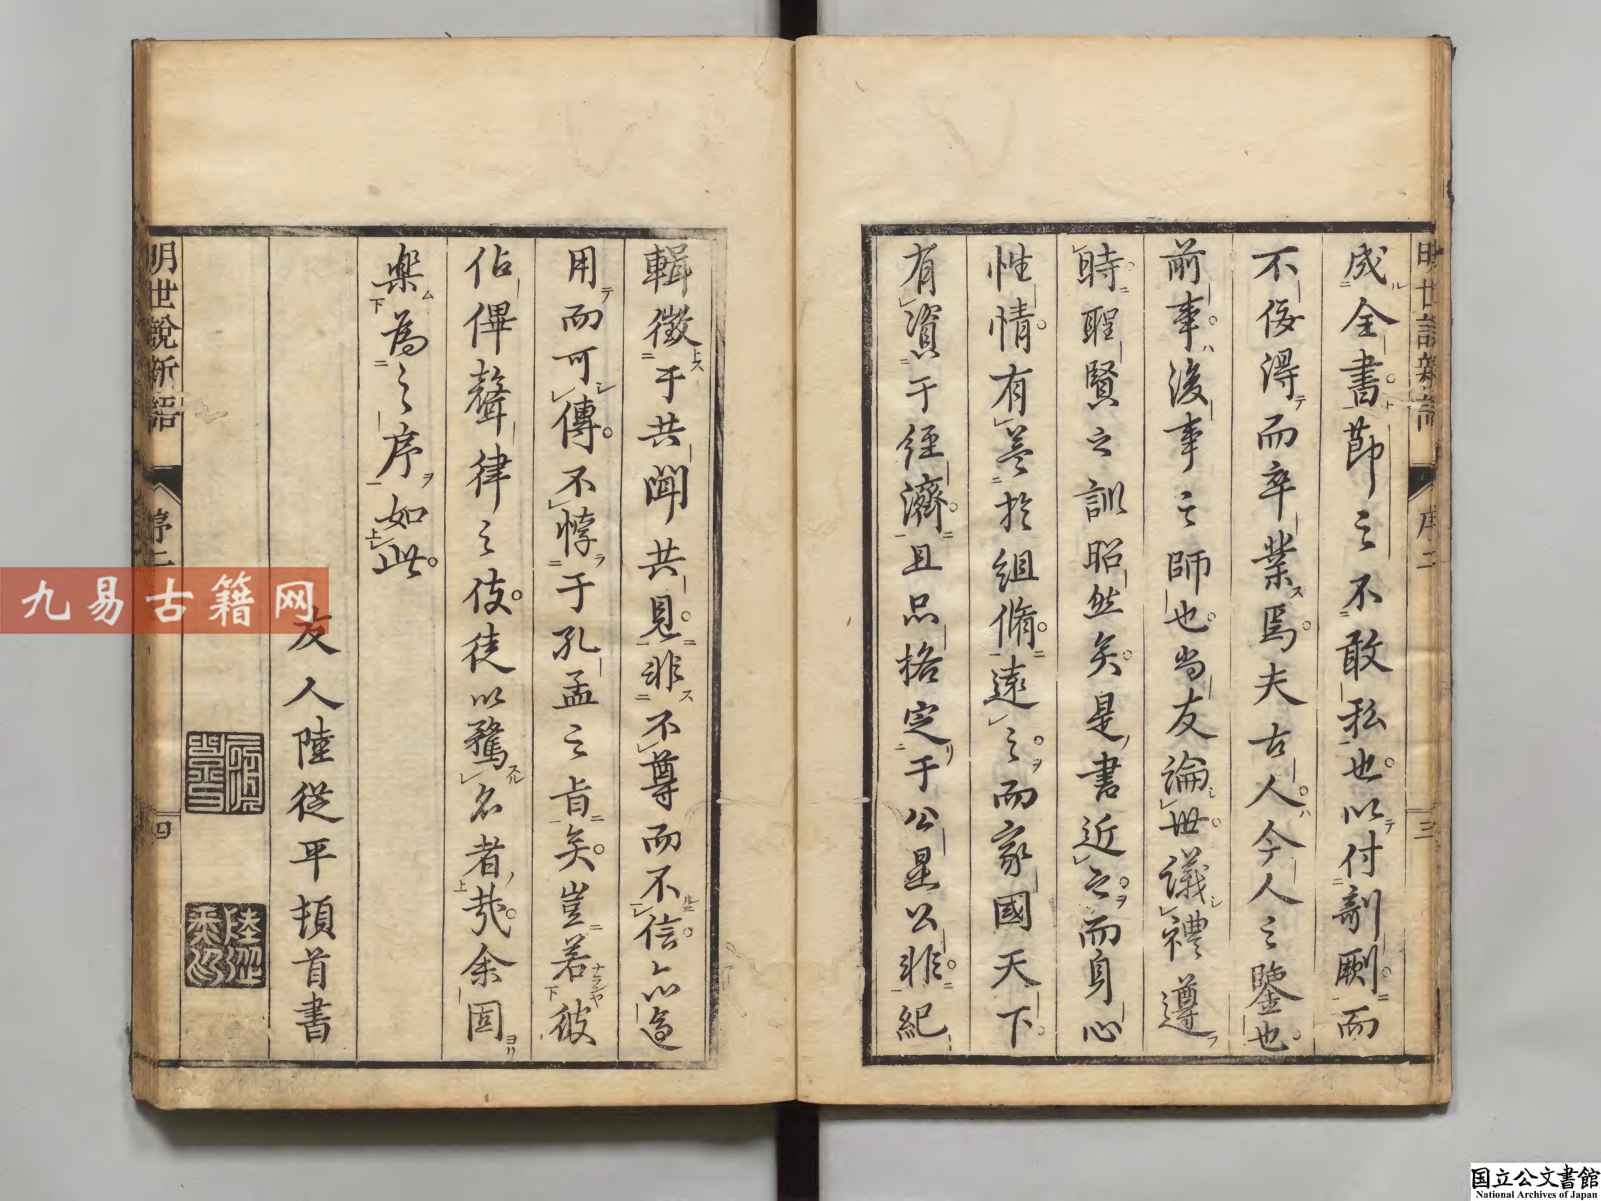 成全書節之不敢私也以付剞劂而
不佞得而卒業焉夫古人今人之鑒也
前事後事之師也尚友論世議禮遵
時聖賢之訓昭然矣是書近之而身心
性情有益於組脩遠之而家國天下
有資于經濟且品格定于公是公非紀
輯徵于共聞共見非不尊而不信亦適
用而可傳不悖于孔孟之旨矣豈若彼
佔俾聲律之伎徒以騖名者哉余固
樂為之序如此
友人陸從平頓首書
明世說新語
序二
三
明世說新語
序二
四
九易古籍网
国立公文書館
National Archives of Japan